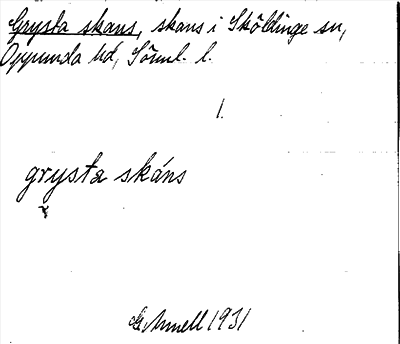 Grysta skans, skans i Sköldinge sn,
Oppunda hd, Söml. l.
1.
grysta skáns
Amell 1931